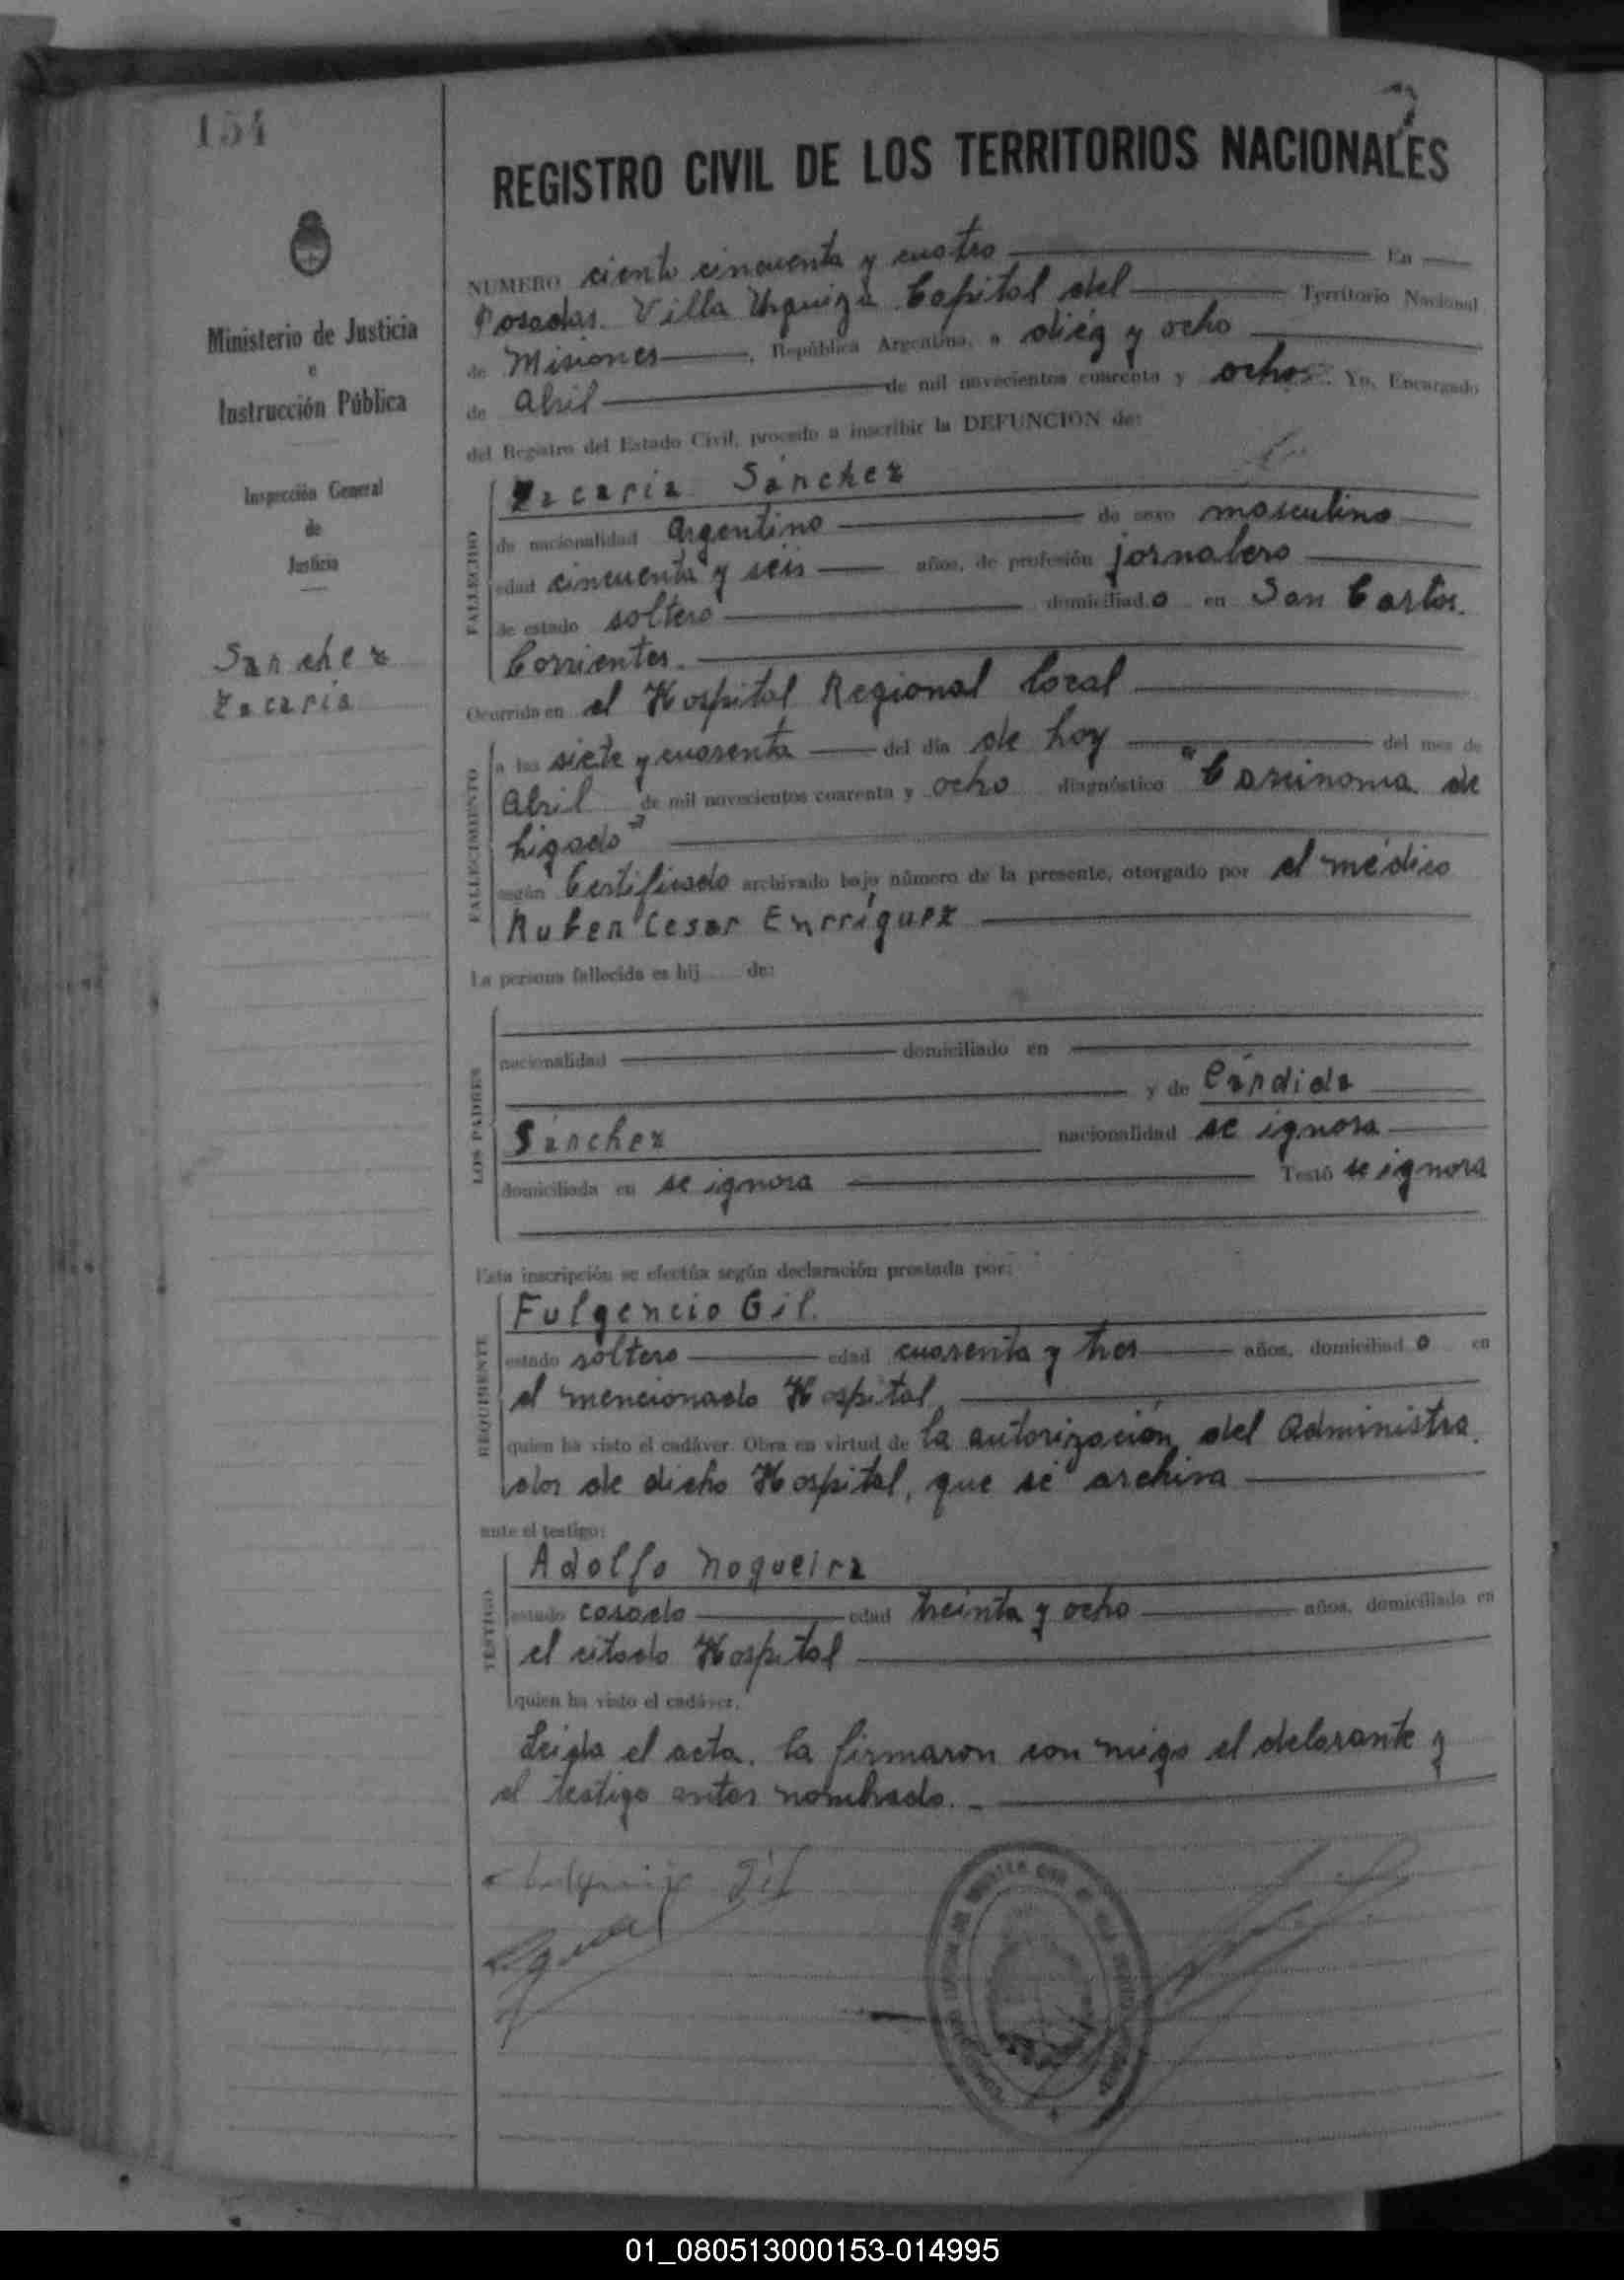 154
REGISTRO CIVIL DE LOS TERRITORIOS NACIONALES
Ministerio de Justicia
e
Instrucción Pública
Inspección General
de
Justicia
Sanchez
Zacaria
NUMERO ciento cincuenta y cuatro En
Posadas. Villa Urquiza Capital del Territorio Nacional
de Misiones, República Argentina, a diez y ocho
de Abril de mil novecientos cuarenta y ocho. Yo, Encargado
del Registro del Estado Civil, procedo a inscribir la DEFUNCION de:
FALLECIDO
Zacaria Sánchez
de nacionalidad Argentino de sexo masculino
edad cincuenta y seis años, de profesión jornalero
de estado soltero domiciliado en San Carlos.
Corrientes.
Ocurrida en el Hospital Regional local
FALLECIMIENTO
a las siete y cuarenta del día de hoy del mes de
Abril de mil novecientos cuarenta y ocho diagnóstico "Carcinoma de
higado"
según Certificado archivado bajo número de la presente, otorgado por el médico
Ruben Cesar Enrríguez
La persona fallecida es hij de:
LOS PADRES
nacionalidad domiciliado en
y de Cándida
Sánchez nacionalidad se ignora
domiciliada en se ignora Testó se ignora
Esta inscripción se efectúa según declaración prestada por:
REQUIRENTE
Fulgencio Gil.
estado soltero edad cuarenta y tres años, domiciliado en
el mencionado Hospital
quien ha visto el cadáver. Obra en virtud de la autorización del Administra
dor de dicho Hospital, que se archiva
ante el testigo:
TESTIGO
Adolfo Nogueira
estado casado edad treinta y ocho años, domiciliado en
el citado Hospital
quien ha visto el cadáver.
Leida el acta. la firmaron con migo el delarante y
el testigo antes nombrado.
Gil
01_080513000153-014995